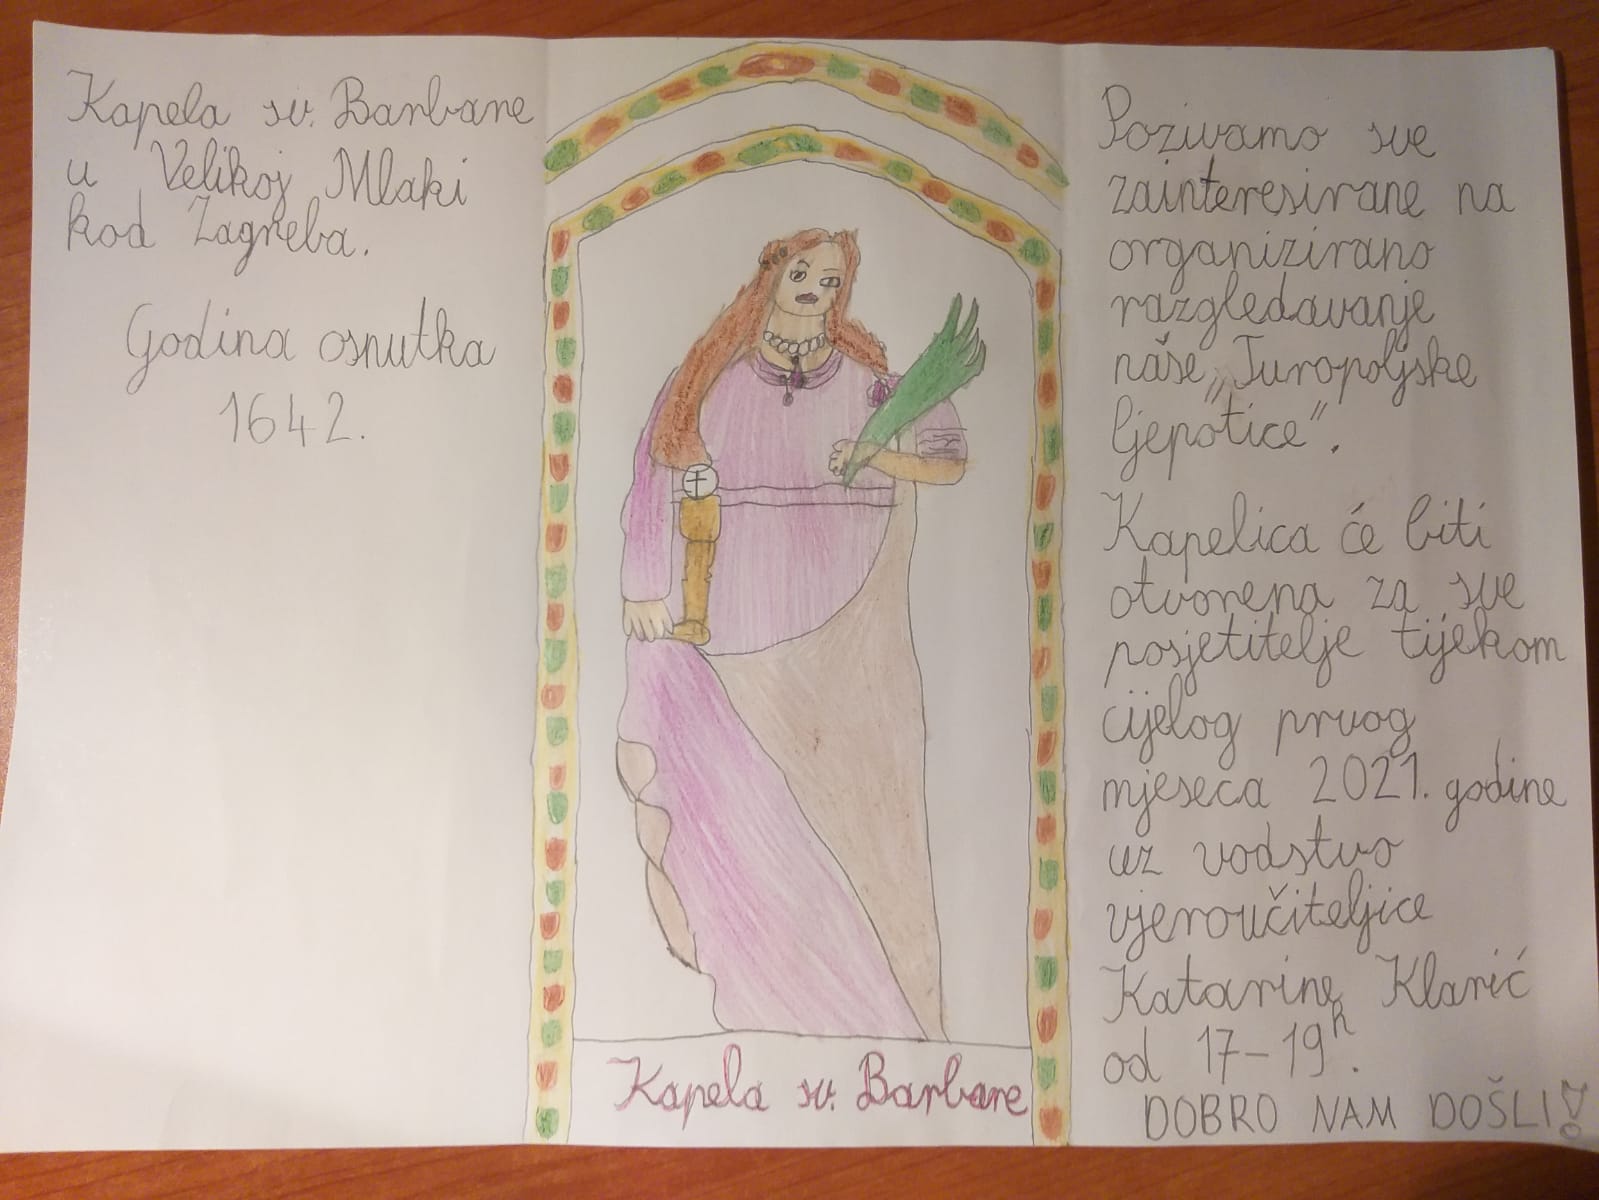 Kapela sv. Barbare
u Velikoj Mlaki
kod Zagreba.
Godina osnutka
1642.
Kapela sv. Barbare
Pozivamo sve
zainteresirane na
organizirano
razgledavanje
naše „Turopoljske
ljepotice”.
Kapelica će biti
otvorena za sve
posjetitelje tijekom
cijelog prvog
mjeseca 2021. godine
uz vodstvo
vjeroučiteljice
Katarine Klarić
od 17-19h.
DOBRO NAM DOŠLI!